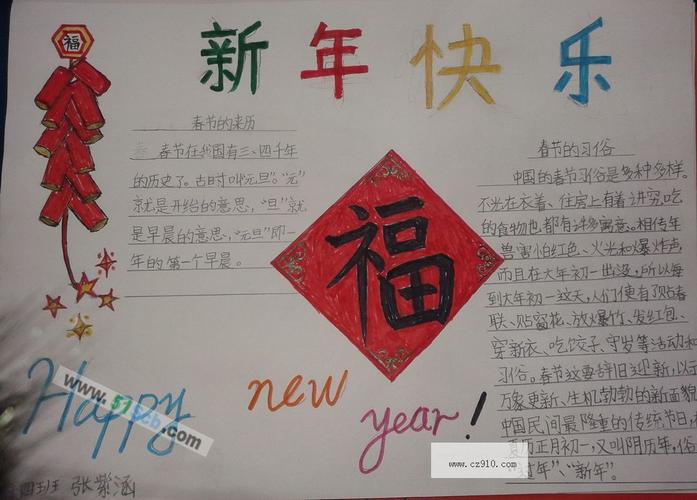 福
新年快乐
春节的来历
春节在我国有三、四千年
的历史了。古时叫“元旦”。“元”
就是开始的意思，“旦”就
是早晨的意思，“元旦”即一
年的第一个早晨。
福
春节的习俗
中国的春节习俗是多种多样。
不光在衣着、住房上有着讲究，吃
的食物也都有许多寓意。相传年
兽害怕红色、火光和爆炸声，
而且在大年初一出没，所以每
到大年初一这天，人们便有了贴春
联、贴窗花、放爆竹、发红包、
穿新衣、吃饺子、守岁等活动和
习俗。春节这要辞旧迎新，以
万象更新、生机勃勃的新面貌
中国民间最隆重的传统节日，
夏历正月初一，又叫阴历年，俗
“过年”、“新年”。
Happy new year!
四五班 张紫涵
www.515cb.com
www.cz910.com